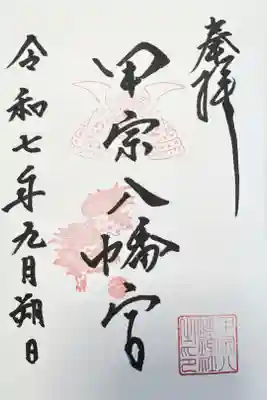 奉拝
甲宗八幡宮
令和七年九月朔日